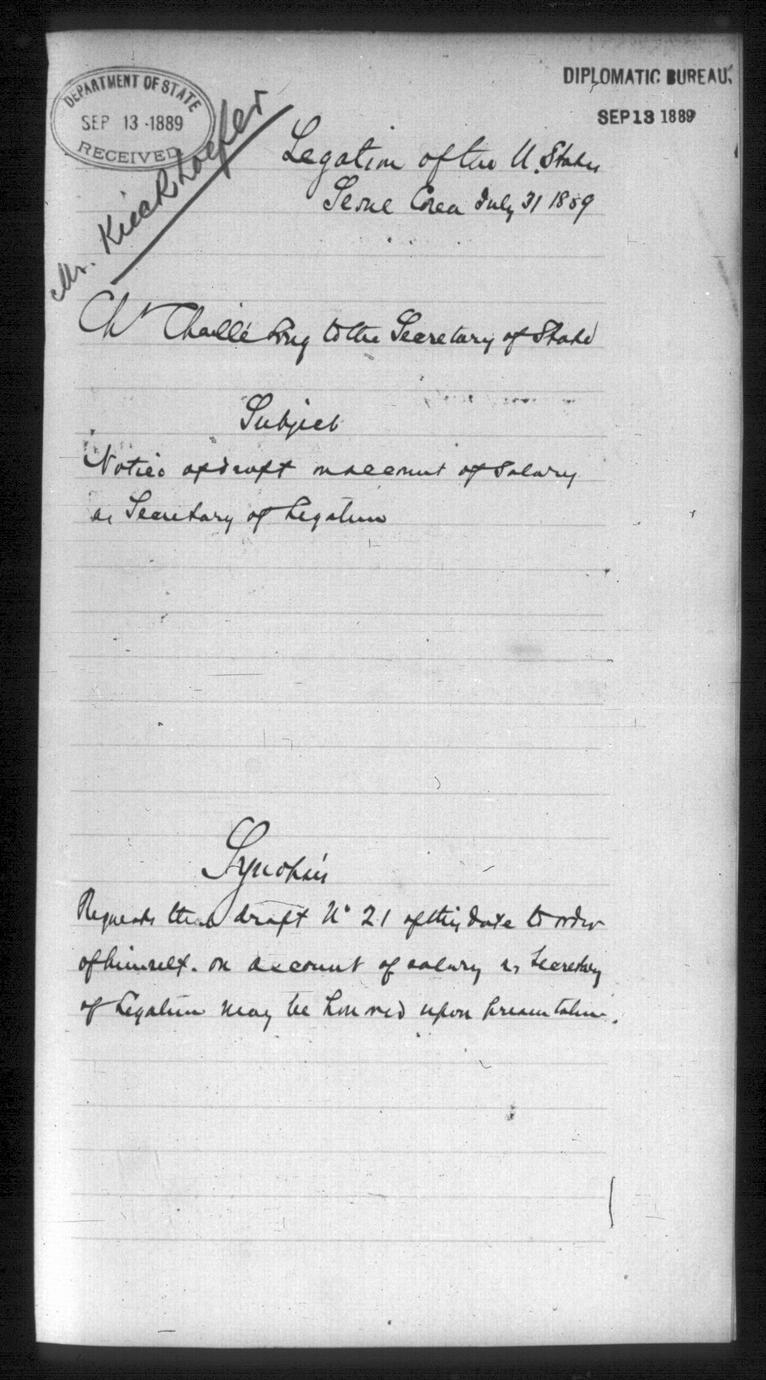 DEPARTMENT OF STATE
SEP 13 1889
RECEIVED
DIPLOMATIC BUREAU.
SEP 13 1889
Mr. Kieckhoefer
Legation of the U. States
Seoul Corea July 31 1889
Chs Chaillé Long to the Secretary of State
Subject
Notice of draft on account of Salary
as Secretary of Legation
Synopsis
Requests that draft No 21 of this date to order
of himself. on account of salary as Secretary
of Legation may be honored upon presentation.